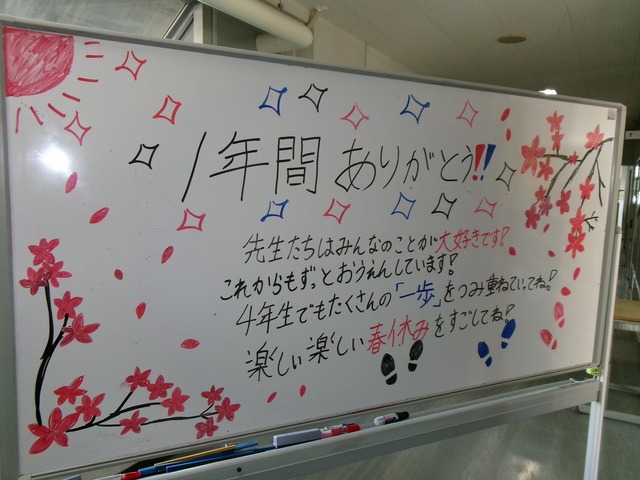 1年間ありがとう!!
先生たちはみんなのことが大好きです!
これからもずっとおうえんしています!
4年生でもたくさんの「一歩」をつみ重ねていってね!
楽しい楽しい春休みをすごしてね!